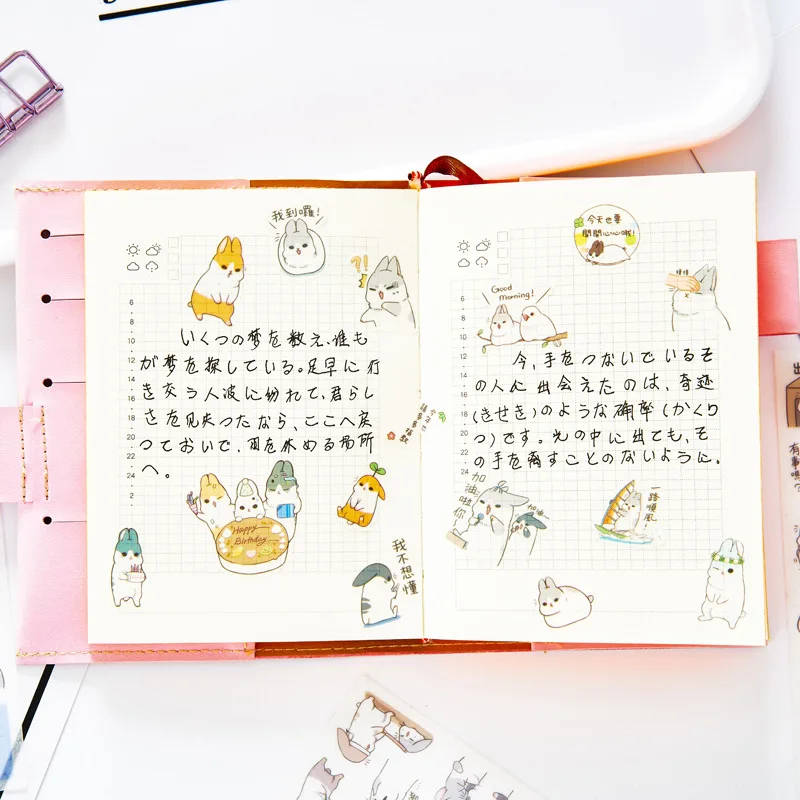 我到囉!
?!
6
8
10
12
14
16
18
20
22
24
2
いくつの夢を数え、誰も
が夢を探している。足早に行
き交う人波に紛れて、君らし
さを見失ったなら、ここへ戻
っておいで、羽を休める場所
へ。
Happy
Birthday
我不想懂
今天也要
開開心心哦!
Good
morning!
6
8
10
12
14
16
18
20
22
24
今,手をつないでいるそ
の人に出会えたのは、奇迹
(きせき)のような確率(かくり
つ)です。光の中に出ても,そ
の手を离すことのないように.
加油啦你!
加油~
一路順風!